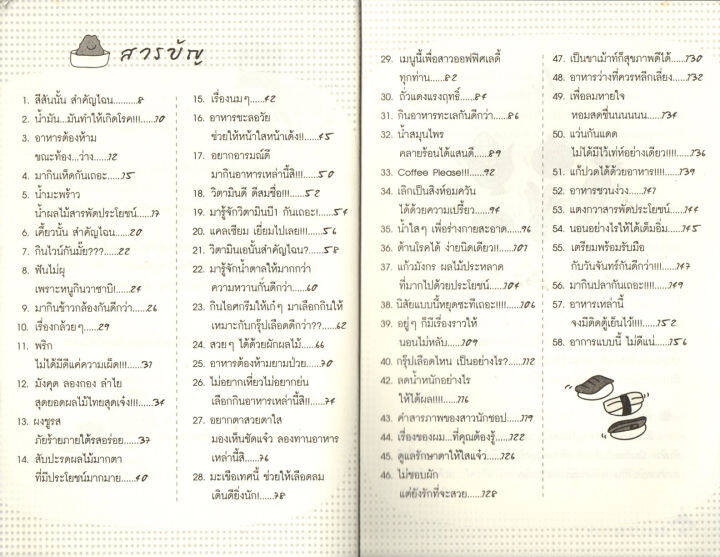 สารบัญ
1. สีสันนั้น สำคัญไฉน.........8
2. น้ำมัน...มันทำให้เกิดโรค!!!...10
3. อาหารต้องห้าม
ขณะท้อง...ว่าง....12
4. มากินเห็ดกันเถอะ....15
5. น้ำมะพร้าว
น้ำผลไม้สารพัดประโยชน์...17
6. เคี้ยวนั้น สำคัญไฉน....20
7. กินไวน์กันมั้ย???....22
8. ฟันไม่ผุ
เพราะหนูกินวาซาบิ!...24
9. มากินข้าวกล้องกันดีกว่า...26
10. เรื่องกล้วยๆ....29
11. พริก
ไม่ได้มีดีแค่ความเผ็ด!!!...31
12. มังคุด ลองกอง ลำไย
สุดยอดผลไม้ไทยสุดเจ๋ง!!!...34
13. ผงชูรส
ภัยร้ายภายใต้รสอร่อย....37
14. สับปะรดผลไม้มากตา
ที่มีประโยชน์มากมาย....40
15. เรื่องนมๆ....42
16. อาหารชะลอวัย
ช่วยให้หน้าใสหน้าเด้ง!!...45
17. อยากอารมณ์ดี
มากินอาหารเหล่านี้สิ!!!....50
18. วิตามินดี ดีสมชื่อ!!!....52
19. มารู้จักวิตามินบี1 กันเถอะ!...54
20. แคลเซียม เยี่ยมไปเลย!!!...56
21. วิตามินเอนั้นสำคัญไฉน?...58
22. มารู้จักน้ำตาลให้มากกว่า
ความหวานกันดีกว่า....60
23. กินไอศกรีมให้เก๋ๆ มาเลือกกินให้
เหมาะกับกรุ๊ปเลือดดีกว่า??...62
24. สวยๆ ได้ด้วยผักผลไม้....66
25. อาหารต้องห้ามยามป่วย....70
26. ไม่อยากเหี่ยวไม่อยากย่น
เลือกกินอาหารเหล่านี้สิ!!...74
27. อยากตาสวยตาใส
มองเห็นชัดแจ๋ว ลองทานอาหาร
เหล่านี้สิ....76
28. มะเขือเทศนี้ ช่วยให้เลือดลม
เดินดียิ่งนัก!....78
29. เมนูนี้เพื่อสาวออฟฟิศเลดี้
ทุกท่าน.....82
30. ถั่วแดงแรงฤทธิ์....84
31. กินอาหารทะเลกันดีกว่า....86
32. น้ำสมุนไพร
คลายร้อนได้แสนดี....89
33. Coffee Please!!!....92
34. เลิกเป็นสิงห์อมควัน
ได้ด้วยความเปรี้ยว....94
35. น้ำใสๆ เพื่อร่างกายสะอาด....96
36. ต้านโรคได้ ง่ายนิดเดียว!!...101
37. แก้วมังกร ผลไม้ประหลาด
ที่มากไปด้วยประโยชน์...104
38. นิสัยแบบนี้หยุดซะทีเถอะ!!!!...106
39. อยู่ๆ ก็มีเรื่องราวให้
นอนไม่หลับ.....109
40. กรุ๊ปเลือดไหน เป็นอย่างไร?....112
42. ลดน้ำหนักอย่างไร
ให้ได้ผล!!!!....116
43. คำสารภาพของสาวนักชอป....119
44. เรื่องของผม...ที่คุณต้องรู้....122
45. ดูแลรักษาตาให้ใสแจ๋ว....126
46. ไม่ชอบผัก
แต่ยังรักที่จะสวย.....128
47. เป็นขาเม้าท์ก็สุขภาพดีได้....130
48. อาหารว่างที่ควรหลีกเลี่ยง...132
49. เพื่อลมหายใจ
หอมสดชื่นนนนนน....134
50. แว่นกันแดด
ไม่ได้มีไว้เท่ห์อย่างเดียว!!!!...136
51. แก้ปวดได้ด้วยอาหาร!!!!....139
52. อาหารชวนง่วง....141
53. แตงกวาสารพัดประโยชน์....144
54. นอนอย่างไรให้ได้เต็มอิ่ม....145
55. เตรียมพร้อมรับมือ
กับวันจันทร์กันดีกว่า!!!....147
56. มากินปลากันเถอะ!!!!....149
57. อาหารเหล่านี้
จงมีติดตู้เย็นไว้!!!!....152
58. อาการแบบนี้ ไม่ดีแน่....156